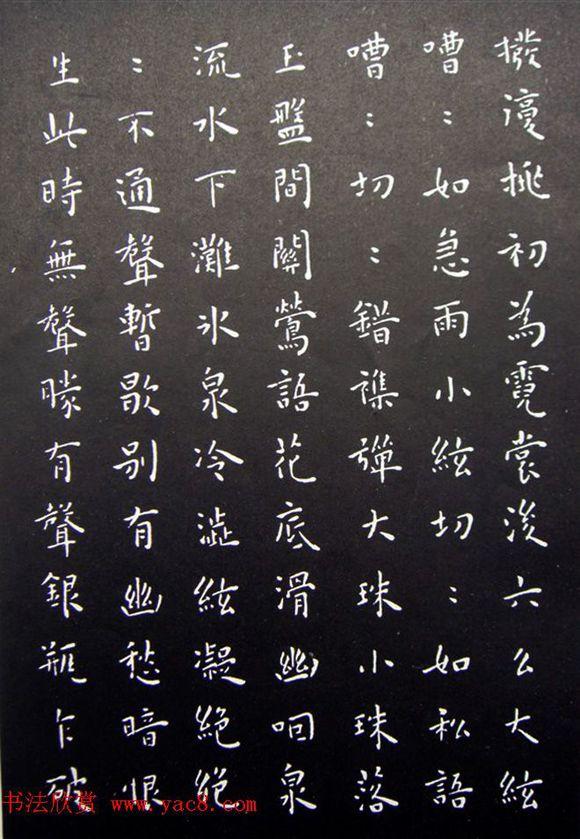 撥復挑初為霓裳後六么大絃
嘈:如急雨小絃切:如私語
嘈:切:錯雜彈大珠小珠落
玉盤間關鶯語花底滑幽咽泉
流水下灘氷泉冷澁絃凝絕絕
:不通聲暫歇別有幽愁暗恨
生此時無聲勝有聲銀瓶乍破
书法欣赏 www.yac8.com